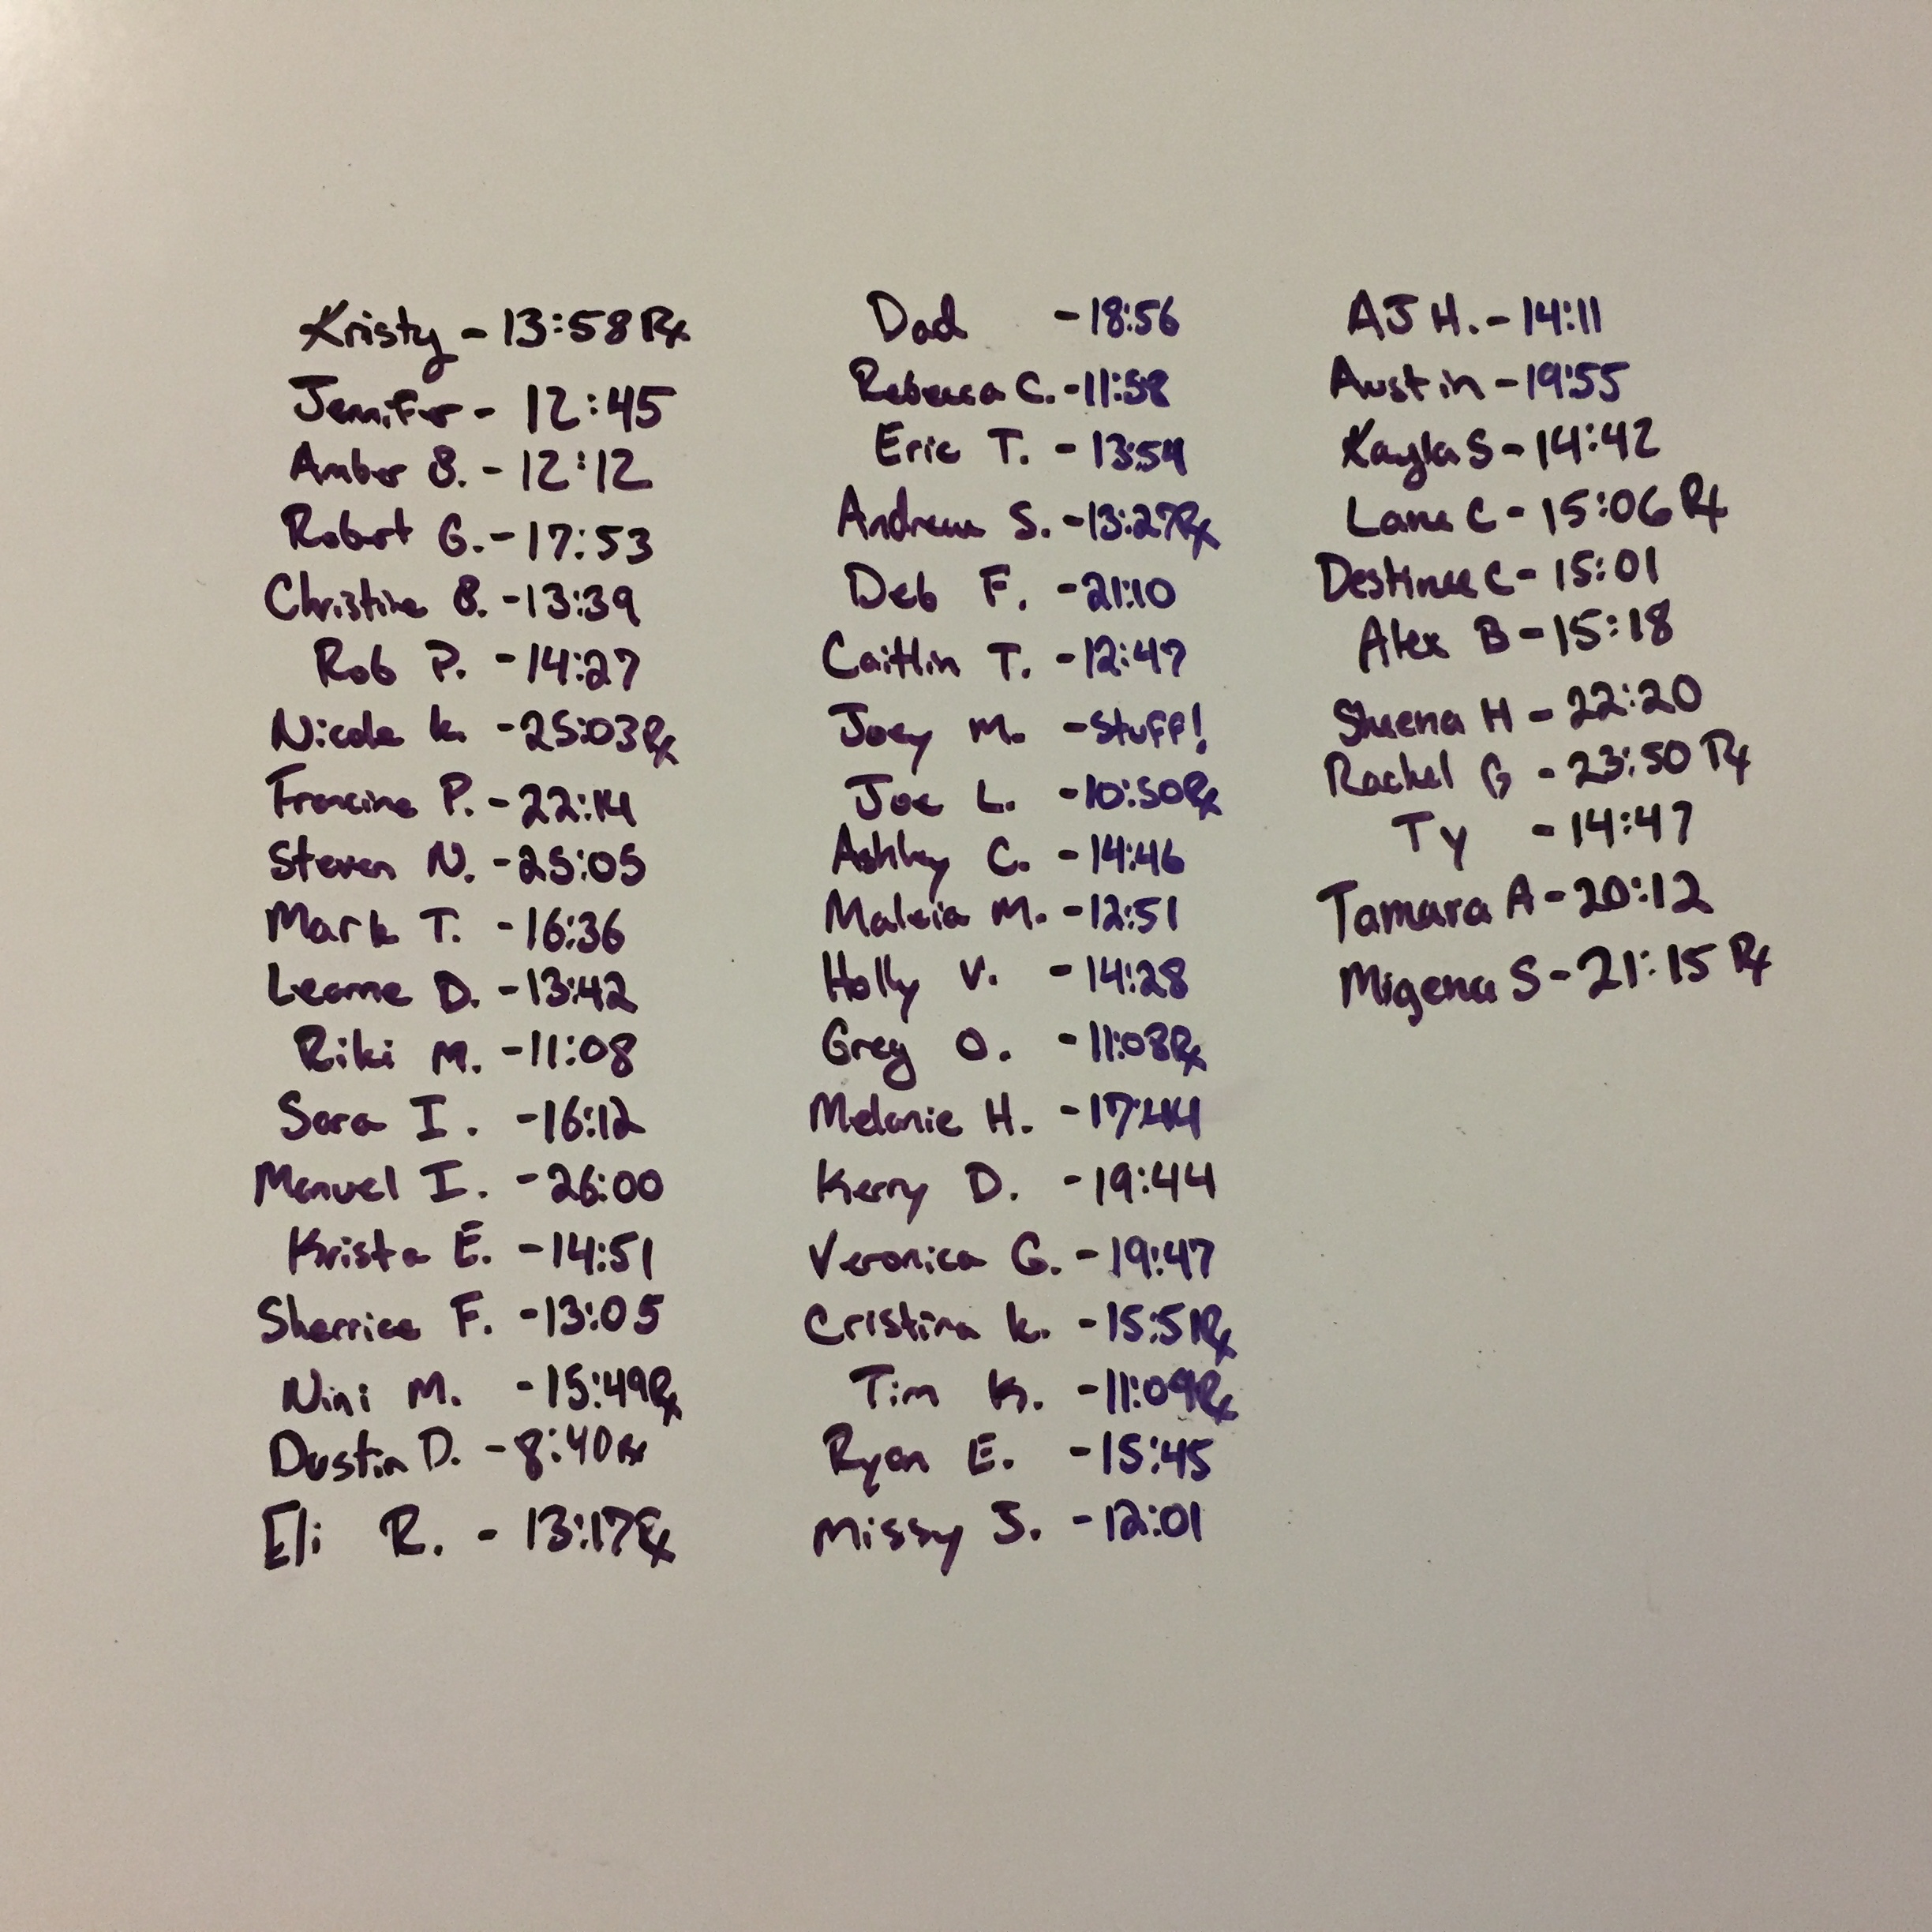 Kristy - 13:58 Rx
Jennifer - 12:45
Amber B. - 12:12
Robert G. - 17:53
Christine B. - 13:39
Rob P. - 14:27
Nicole K. - 25:03 Rx
Francine P. - 22:14
Steven N. - 25:05
Mark T. - 16:36
Leanne D. - 13:42
Riki M. - 11:08
Sara I. - 16:12
Manuel I. - 26:00
Krista E. - 14:51
Sherrice F. - 13:05
Nini M. - 15:49 Rx
Dustin D. - 8:40 Rx
Eli R. - 13:17 Rx
Dad - 18:56
Rebecca C. - 11:58
Eric T. - 13:54
Andrew S. - 13:27 Rx
Deb F. - 21:10
Caitlin T. - 12:47
Joey M. - Stuff!
Joe L. - 10:50 Rx
Ashley C. - 14:46
Maleia M. - 12:51
Holly V. - 14:28
Greg O. - 11:08 Rx
Melanie H. - 17:44
Kerry D. - 19:44
Veronica G. - 19:47
Cristina K. - 15:51 Rx
Tim K. - 11:09 Rx
Ryan E. - 15:45
Missy J. - 12:01
AJ H. - 14:11
Austin - 19:55
Kayla S - 14:42
Lane C - 15:06 Rx
Destinee C - 15:01
Alex B - 15:18
Sheena H - 22:20
Rachel G - 23:50 Rx
Ty - 14:47
Tamara A - 20:12
Migena S - 21:15 Rx